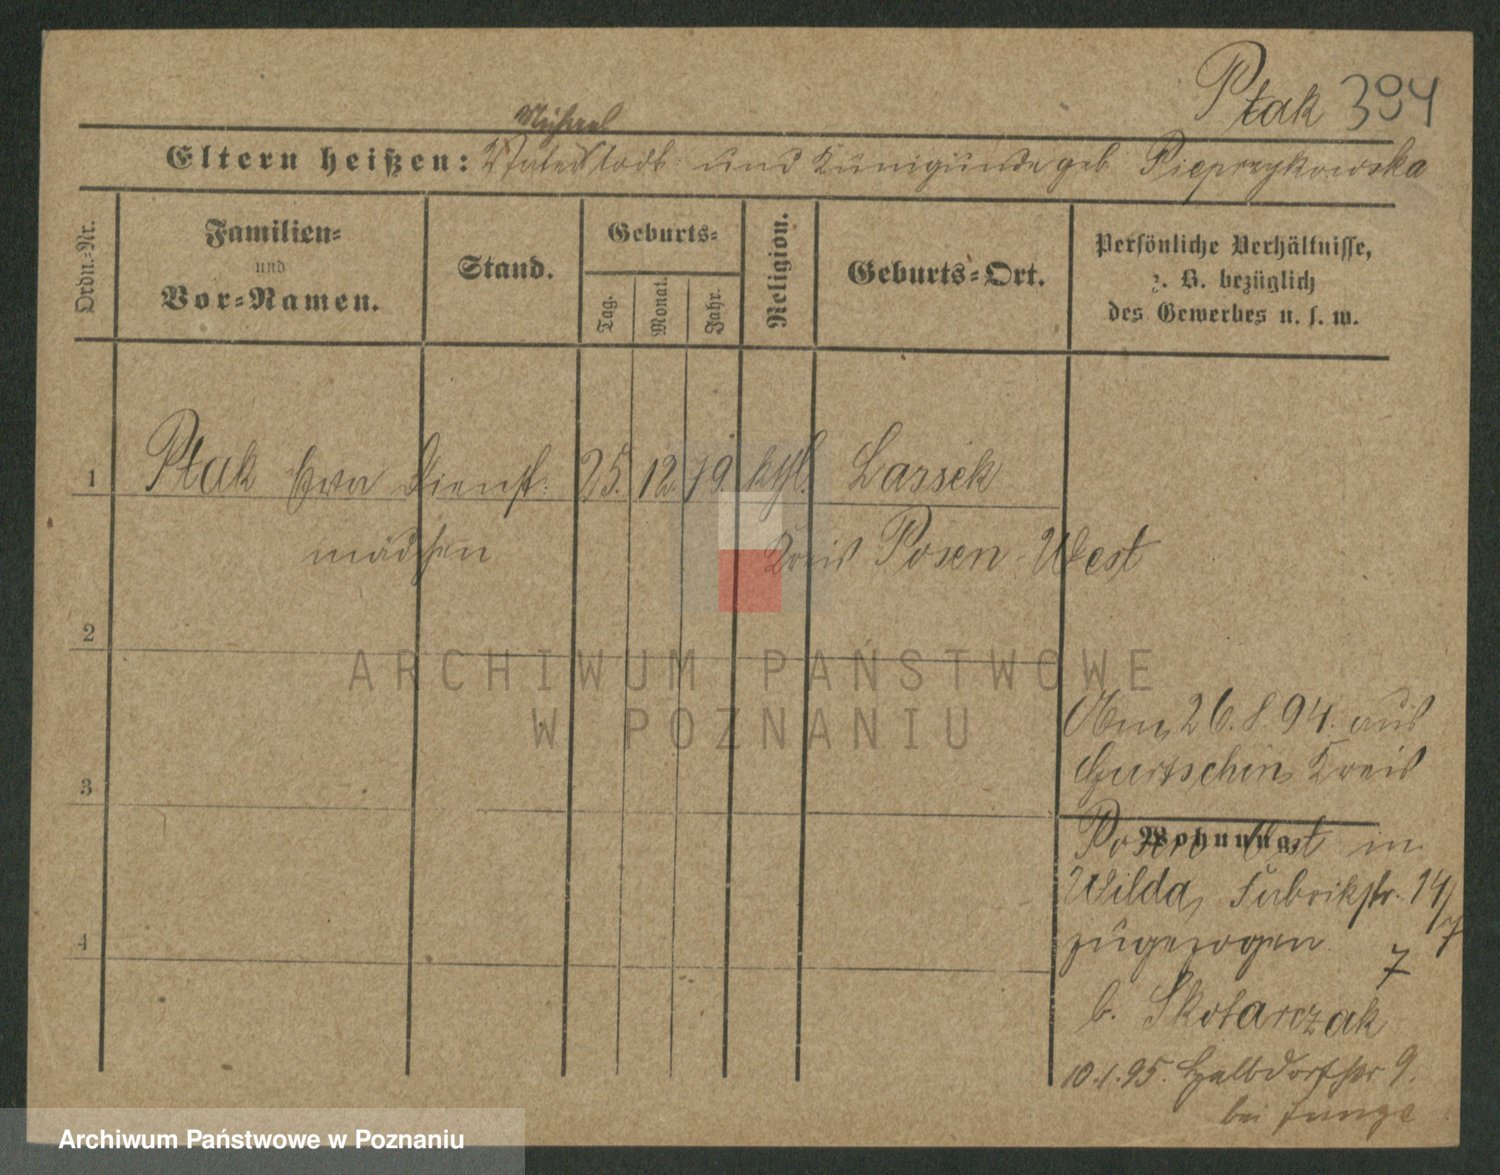 Ptak 394
Michael
Eltern heißen: Vater todt und Kunigunde geb Pieprzykowska
Ordn.-Nr.
Familien-
und
Vor-Namen.
Stand.
Geburts-
Tag.
Monat.
Jahr.
Religion.
Geburts-Ort.
Persönliche Verhältnisse,
z. B. bezüglich
des Gewerbes u. s. w.
1 Ptak Eva Dienst- 25. 12. 79. kthl. Lassek
mädchen Kreis Posen-West
2
3
4
Am 26.8.94. aus
Gurtschin Kreis
Wohnung.
Posen West in
Wilda, Fabrikstr. 14/7
zugezogen 7
b. Skotarczak
10.1.95. Halbdorfstr 9.
bei Junge
ARCHIWUM PAŃSTWOWE
W POZNANIU
Archiwum Państwowe w Poznaniu